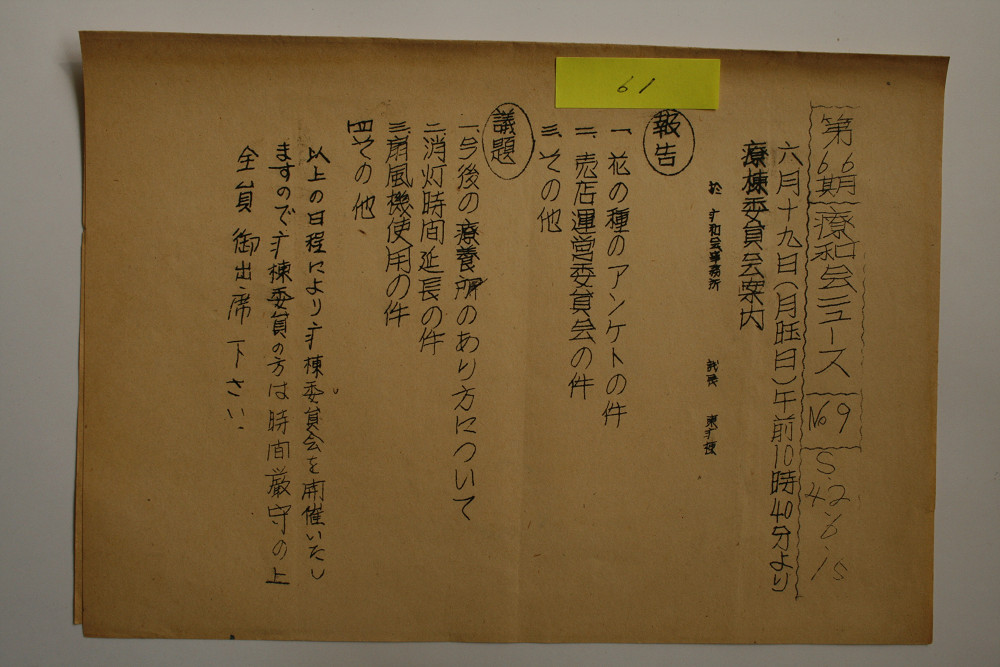 61
第66期療和会ニュース No 9 S.42.6.15
六月十九日(月曜日)午前10時40分より
療棟委員会案内
於 疗和会事務所 東疗棟
報告
一、花の種のアンケトの件
二、売店運営委員会の件
三、その他
議題
一、今後の療養所のあり方について
二、消灯時間延長の件
三、扇風機使用の件
四その他、
以上の日程により疗棟委員会を開催いたし
ますので疗棟委員の方は時間厳守の上
全員御出席下さい.